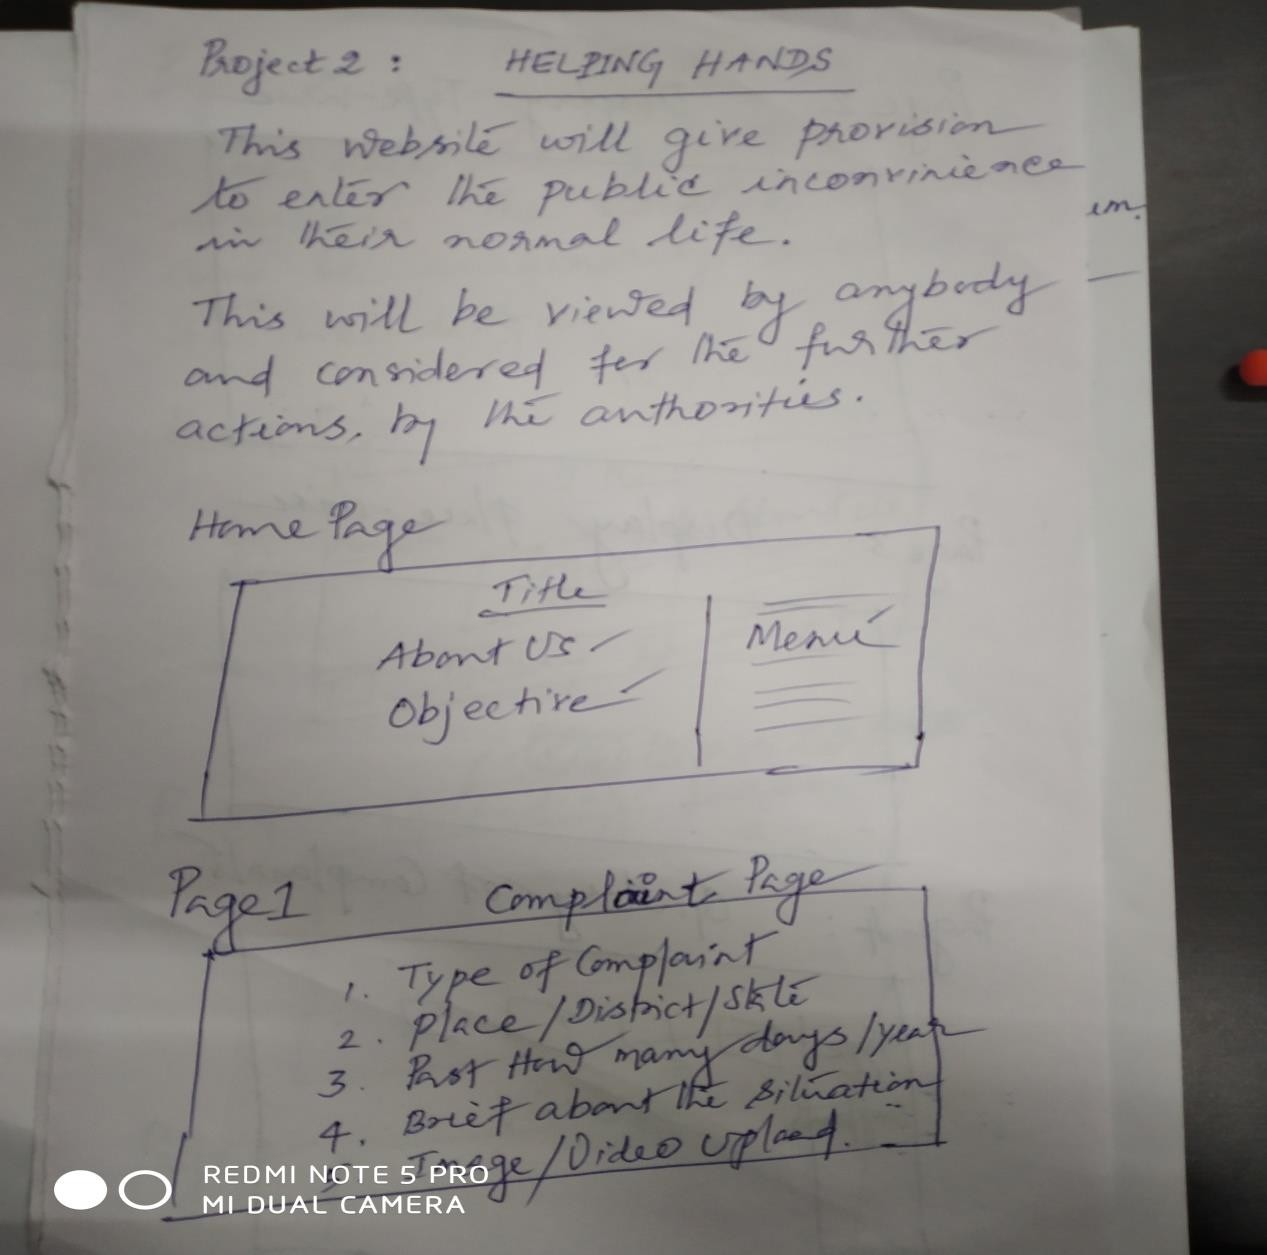 Project 2 : HELPING HANDS
This website will give provision
to enter the public inconvinience
in their normal life.
This will be viewed by anybody
and considered for the further
actions. by the authorities.
Home Page
Title
About Us
Objective
Menu
Page 1 Complaint Page
1. Type of Complaint
2. Place/District/State
3. Past How many days/year
4. Brief about the situation
5. Image/Video upload.
REDMI NOTE 5 PRO
MI DUAL CAMERA